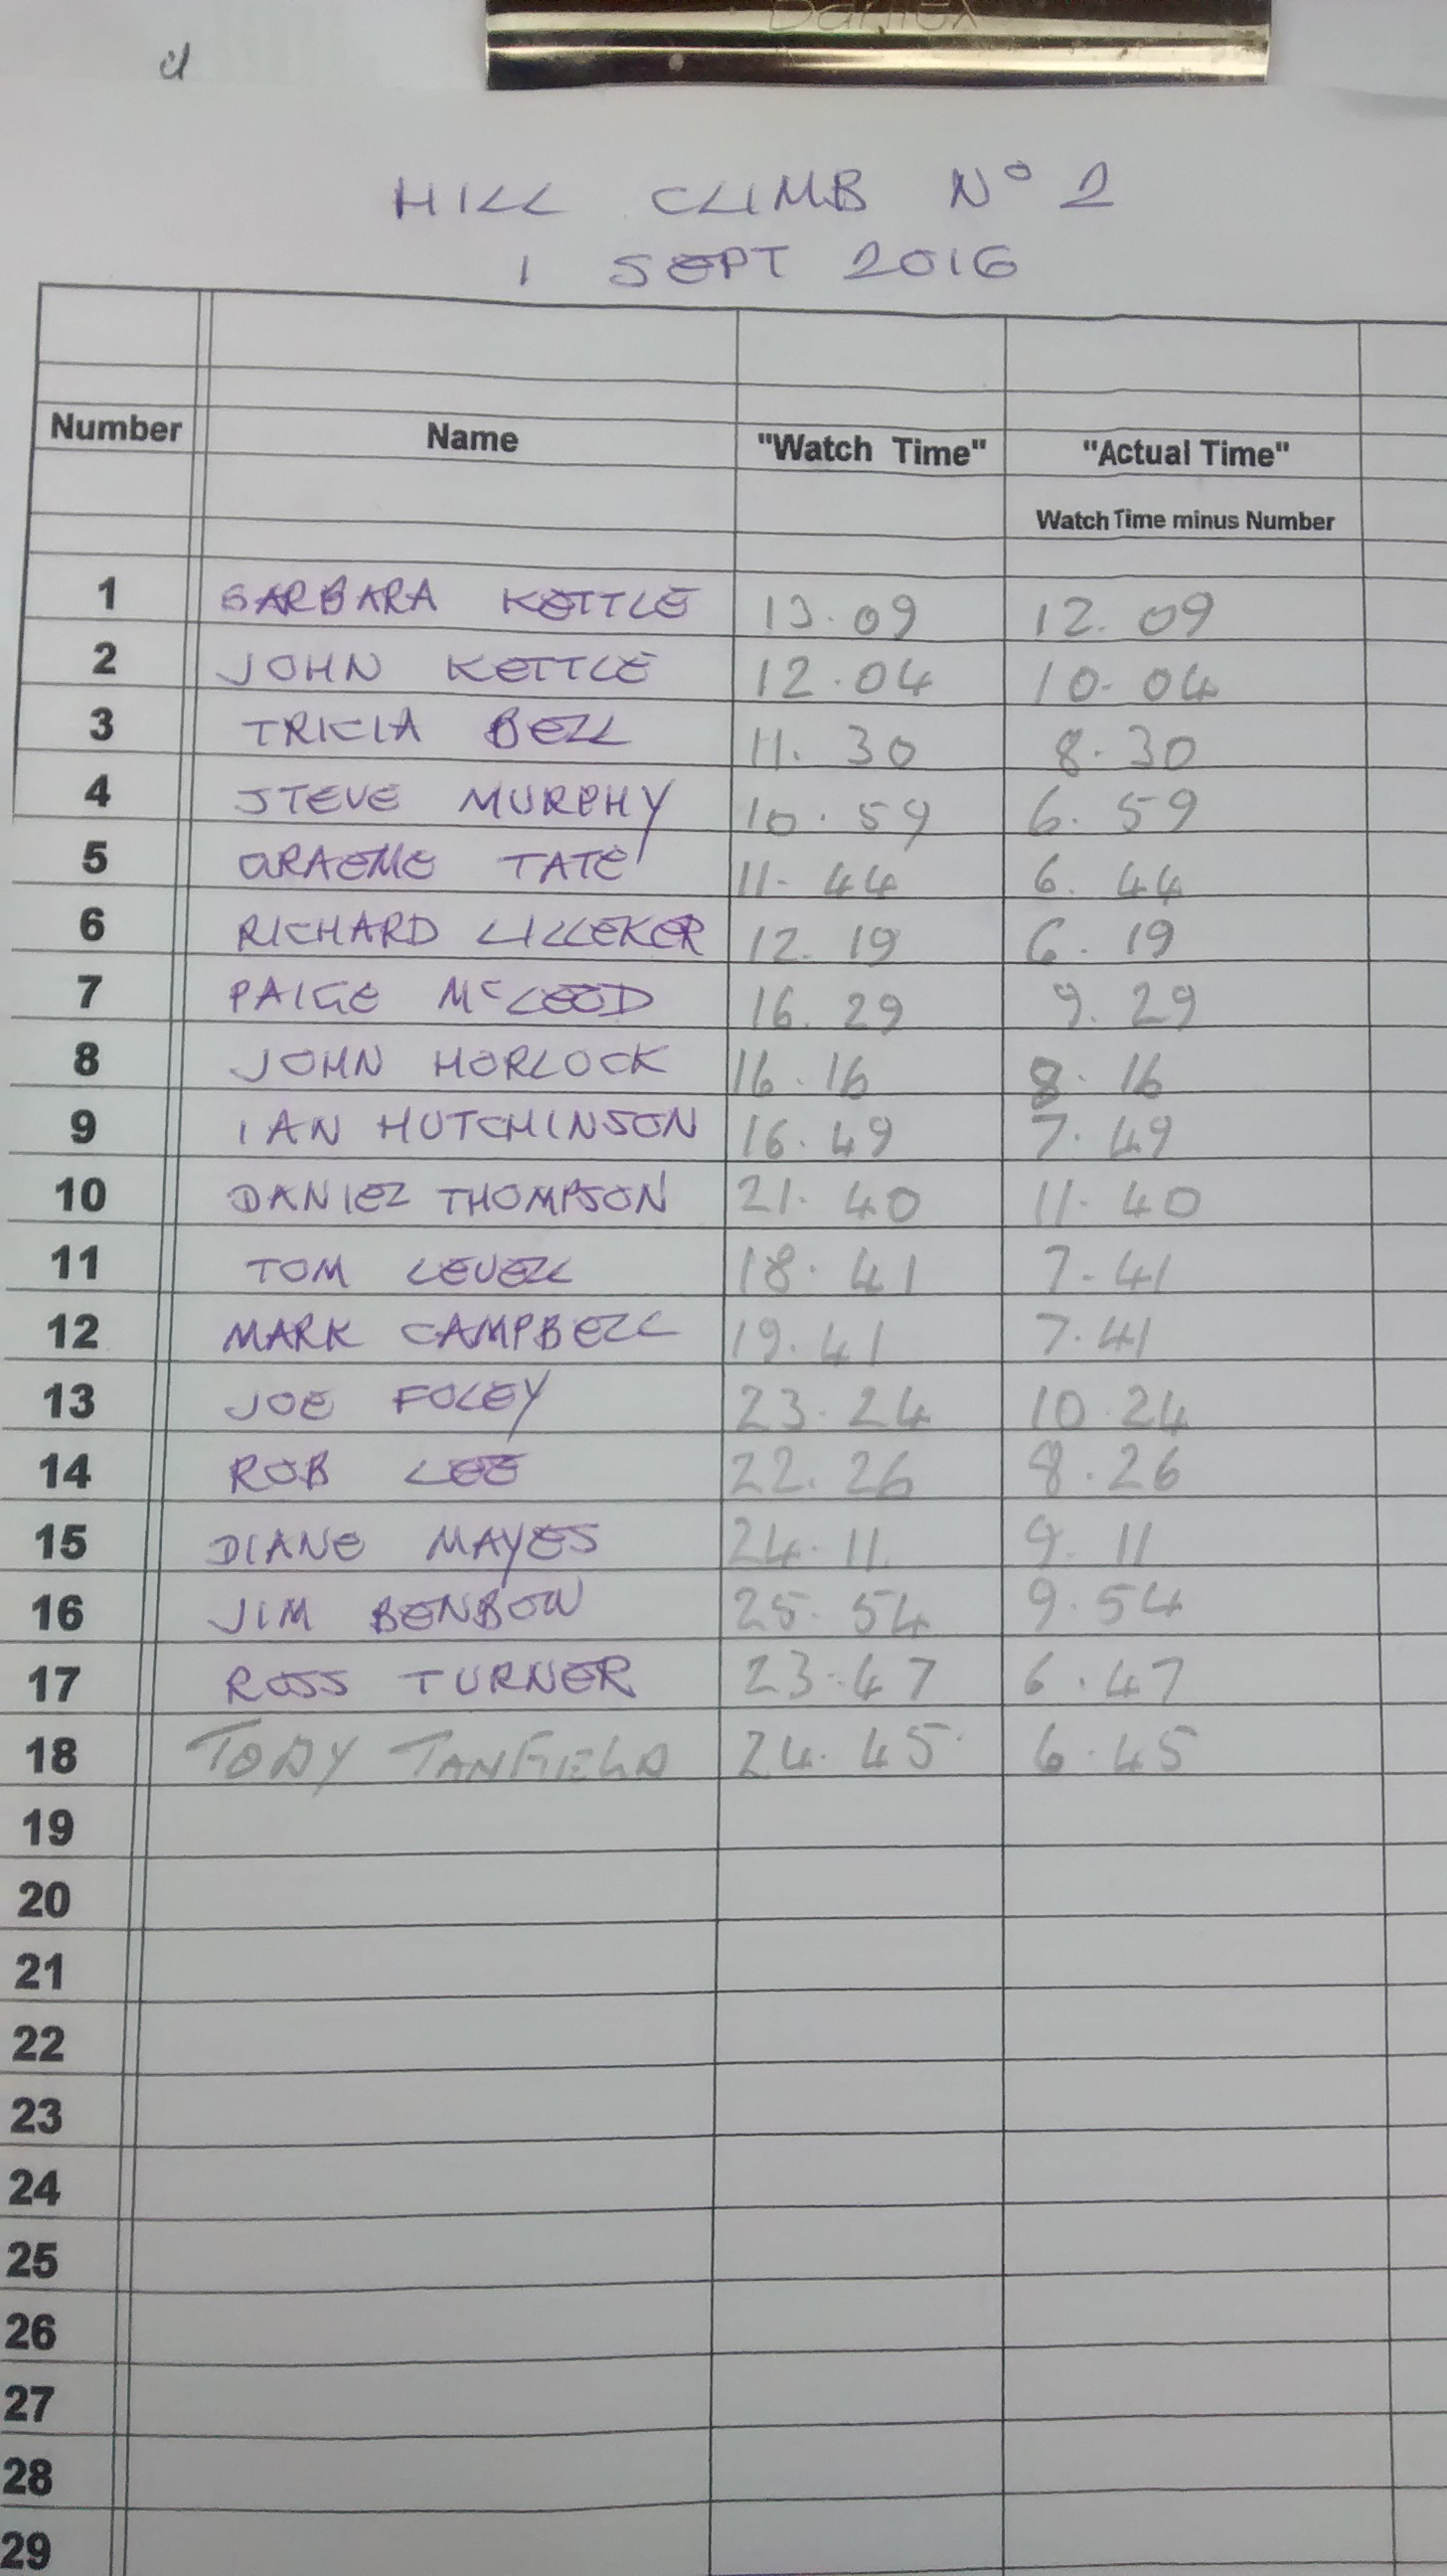 HILL CLIMB Nº 2
1 SEPT 2016
Number Name "Watch Time" "Actual Time"
Watch Time minus Number
1 BARBARA KETTLE 13.09 12.09
2 JOHN KETTLE 12.04 10.04
3 TRICIA BELL 11.30 8.30
4 STEVE MURPHY 10.59 6.59
5 GRAEME TATE 11.44 6.44
6 RICHARD LILLEKER 12.19 6.19
7 PAIGE McLEOD 16.29 9.29
8 JOHN HORLOCK 16.16 8.16
9 IAN HUTCHINSON 16.49 7.49
10 DANIEL THOMPSON 21.40 11.40
11 TOM LEVELL 18.41 7.41
12 MARK CAMPBELL 19.41 7.41
13 JOE FOLEY 23.24 10.24
14 ROB LEE 22.26 8.26
15 DIANE MAYES 24.11 9.11
16 JIM BENBOW 25.54 9.54
17 ROSS TURNER 23.47 6.47
18 TOBY TANFIELD 24.45 6.45
19
20
21
22
23
24
25
26
27
28
29